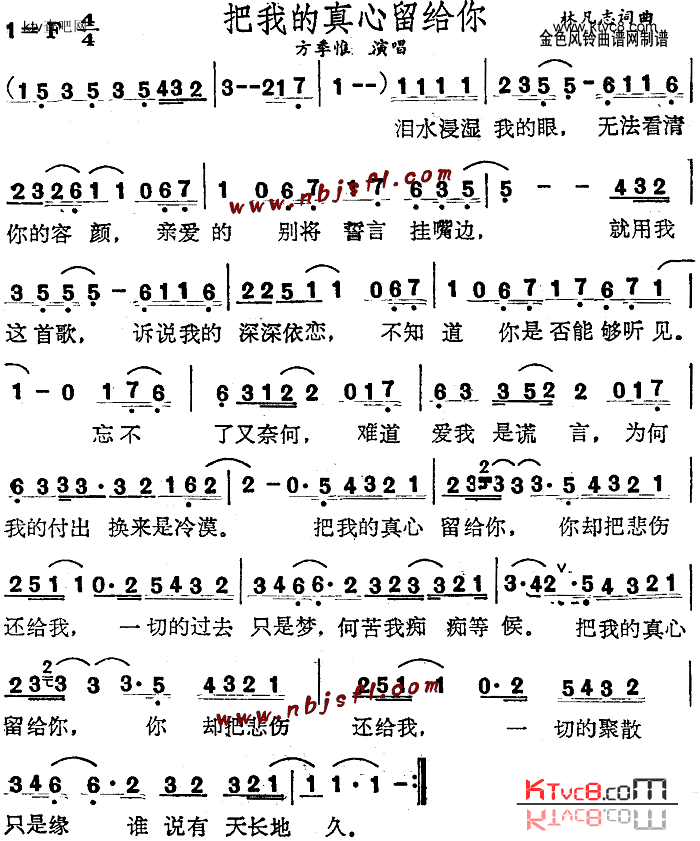 把我的真心留给你
1=F 4/4
方季惟 演唱
林凡志词曲
www.ktvc8.com
金色风铃曲谱网制谱
(1 5 3 5 3 5 5 4 3 2 | 3 - - 2 1 7 | 1 - - ) 1 1 1 1 | 2 3 5 5 - 6 1 1 6 |
泪水浸湿 我的眼, 无法看清
2 3 2 6 1 1 0 6 7 | 1 0 6 7 1 7 6 3 5 | 5 - - 4 3 2 |
你的容 颜, 亲爱的 别将 誓言 挂嘴边, 就用我
www.nbjsfl.com
3 5 5 5 - 6 1 1 6 | 2 2 5 1 1 0 6 7 | 1 0 6 7 1 7 6 7 1 |
这首歌, 诉说我的 深深依恋, 不知道 你是否能够听见。
1 - 0 1 7 6 | 6 3 1 2 2 0 1 7 | 6 3 3 5 2 2 0 1 7 |
忘不 了又奈何, 难道 爱我 是谎 言, 为何
6 3 3 3 3 · 3 2 1 6 2 | 2 - 0 · 5 4 3 2 1 | 2 3 3 3 3 · 5 4 3 2 1 |
我的付出 换来是冷漠。 把我的真心 留给你, 你却把悲伤
2 5 1 1 0 · 2 5 4 3 2 | 3 4 6 6 · 2 3 2 3 3 2 1 | 3 · 4 2 2 · 5 4 3 2 1 |
还给我, 一切的过去 只是梦, 何苦我痴 痴等 侯。 把我的真心
2 3 3 3 3 · 5 4 3 2 1 | 2 5 1 1 0 · 2 5 4 3 2 |
留给你, 你 却把悲伤 还给我, 一 切的聚散
www.nbjsfl.com
3 4 6 6 · 2 3 2 3 2 1 | 1 1 · 1 - :||
只是缘 谁 说有 天长地 久。
KTvc8.com